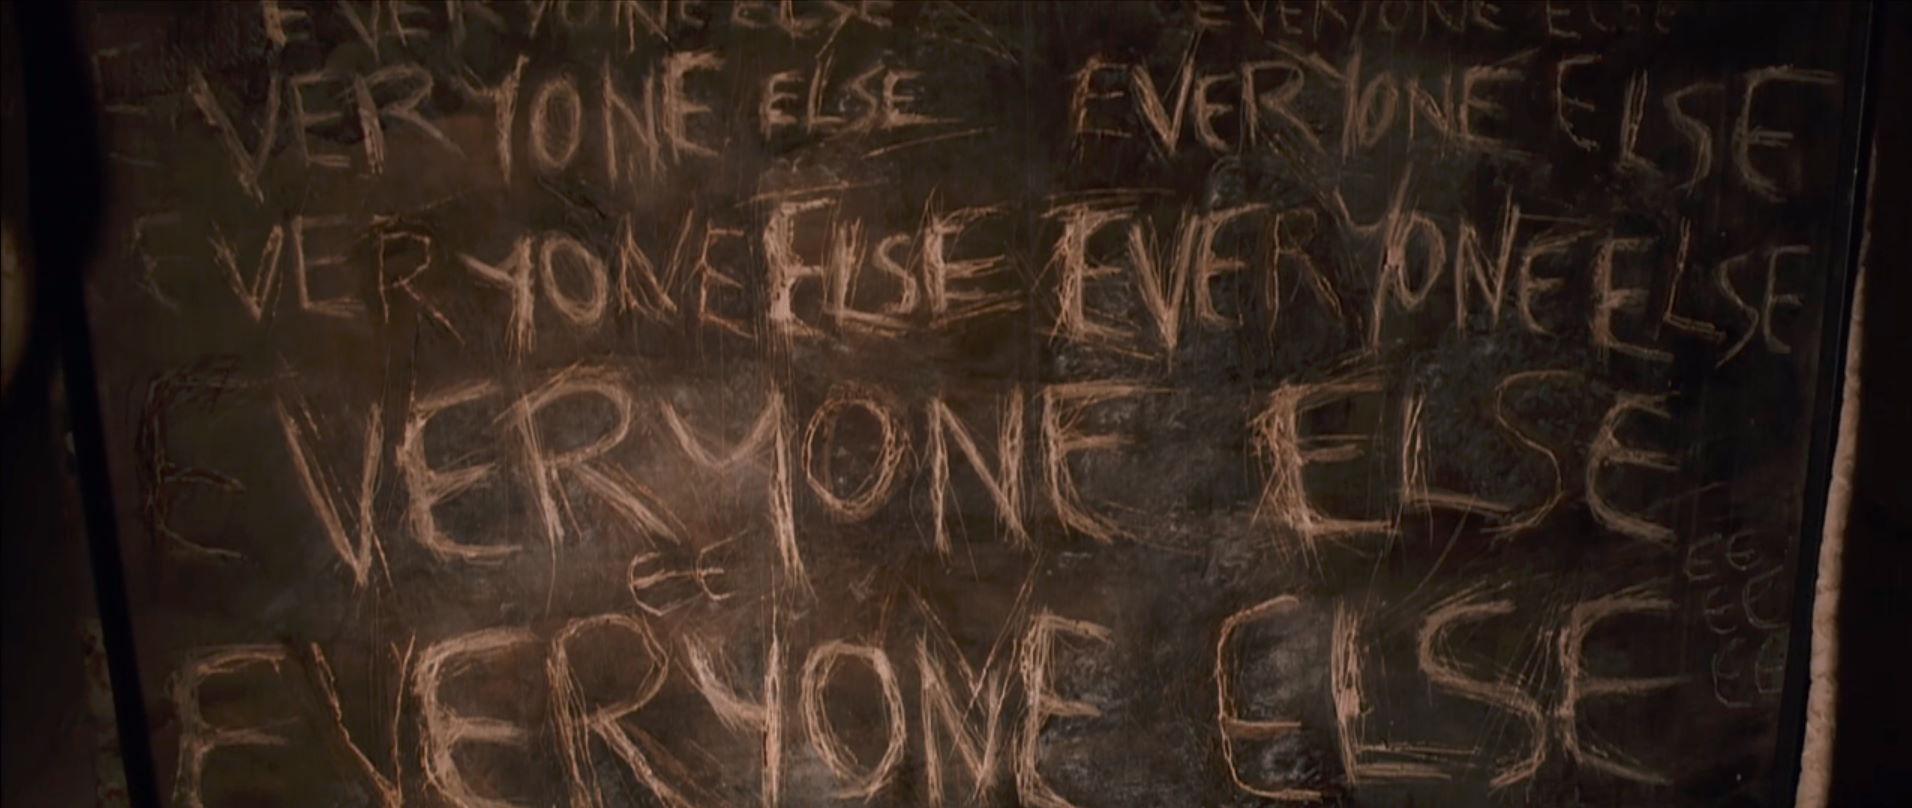 EVERYONE ELSE EVERYONE ELSE
EVERYONE ELSE EVERYONE ELSE
EVERYONE ELSE EVERYONE ELSE
EVERYONE ELSE
EE
EVERYONE ELSE